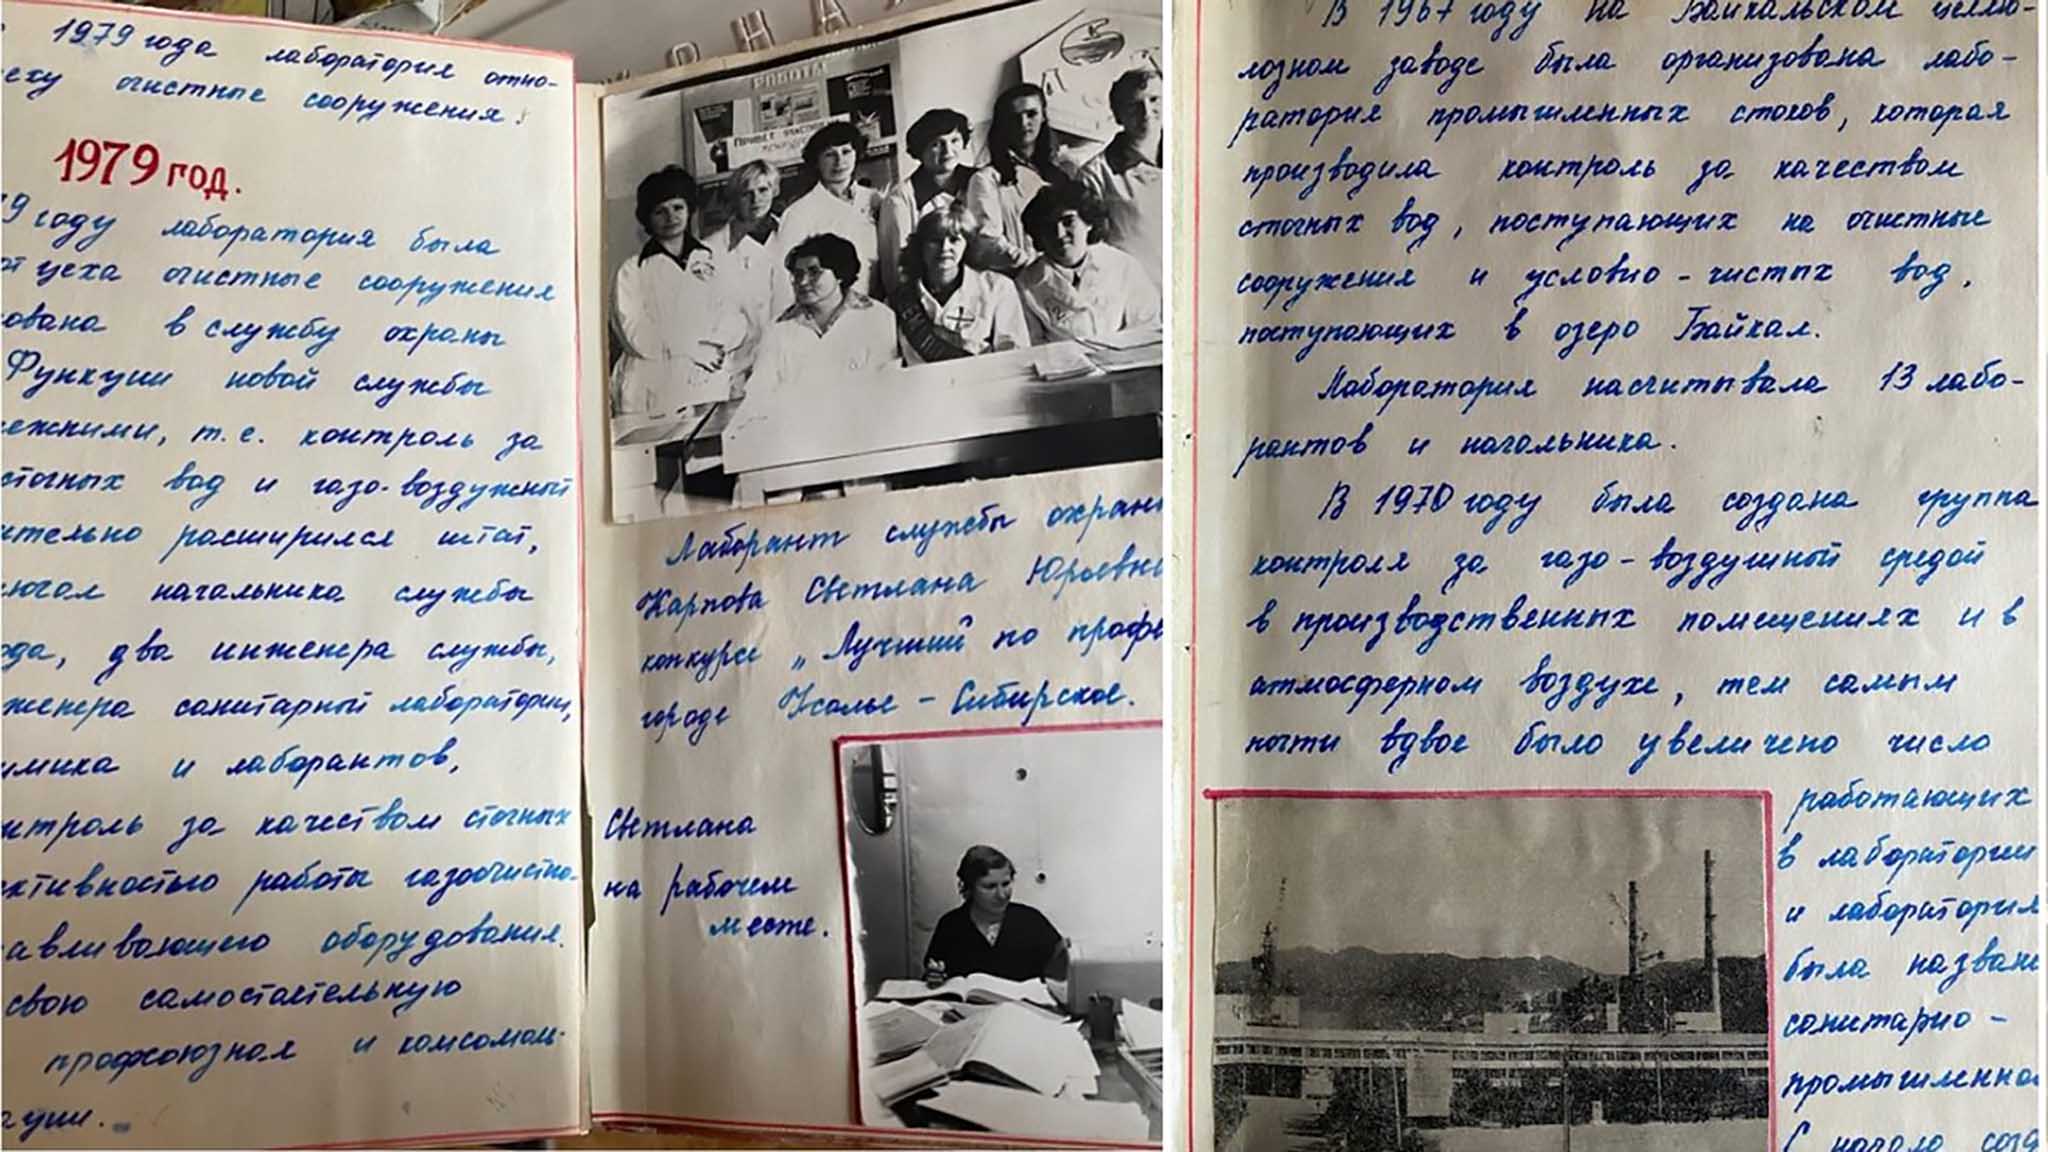 1979 года лаборатория отно-
цеху очистные сооружения.
1979 год.
9 году лаборатория была
от цеха очистные сооружения
ована в службу охраны
Функции новой службы
ежними, т.е. контроль за
сточных вод и газо-воздушной
ительно расширился штат,
ючал начальника службы
ода, два инженера службы,
женера санитарной лаборатории,
имика и лаборантов,
нтроль за качеством сточных
ективностью работы газоочистно-
авливающего оборудования.
свою самостоятельную
профсоюзная и комсомоль-
ации.
РОБОТЫ
Лаборант службы охраны
Карпова Светлана Юрьевн
конкурсе „Лучший по профе
городе Усолье-Сибирское.
Светлана
на рабочем
месте.
В 1967 году на Байкальском целлю-
лозном заводе была организована лабо-
ратория промышленных стоков, которая
производила контроль за качеством
сточных вод, поступающих на очистные
сооружения и условно-чистых вод,
поступающих в озеро Байкал.
Лаборатория насчитывала 13 лабо-
рантов и начальника.
В 1970 году была создана группа
контроля за газо-воздушной средой
в производственных помещениях и в
атмосферном воздухе, тем самым
почти вдвое было увеличено число
работающих
в лаборатории
и лаборатория
была назван
санитарно-
промышленно
С начала созд